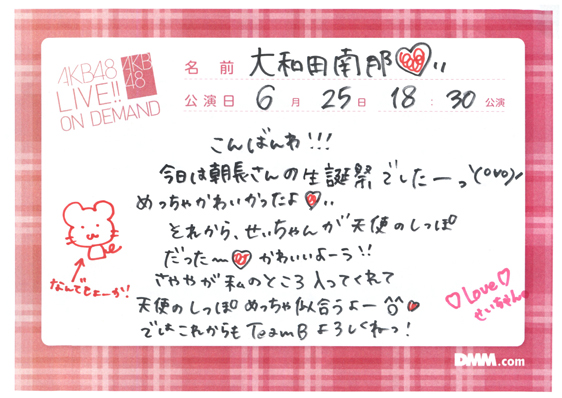 AKB48
LIVE!!
ON DEMAND
AKB
48
名前 大和田南那
公演日 6月 25日 18:30公演
こんばんわ!!!
今日は朝長さんの生誕祭でしたーっ\(ovo)/
めっちゃかわいかったよ
それから、せいちゃんが天使のしっぽ
だった〜 かわいいよーう!!
さややが私のところ入ってくれて
天使のしっぽめっちゃ似合うよー
ではこれからもTeamBよろしくねっ!
なんでしょーか!
Love
せいちゃん。
DMM.com